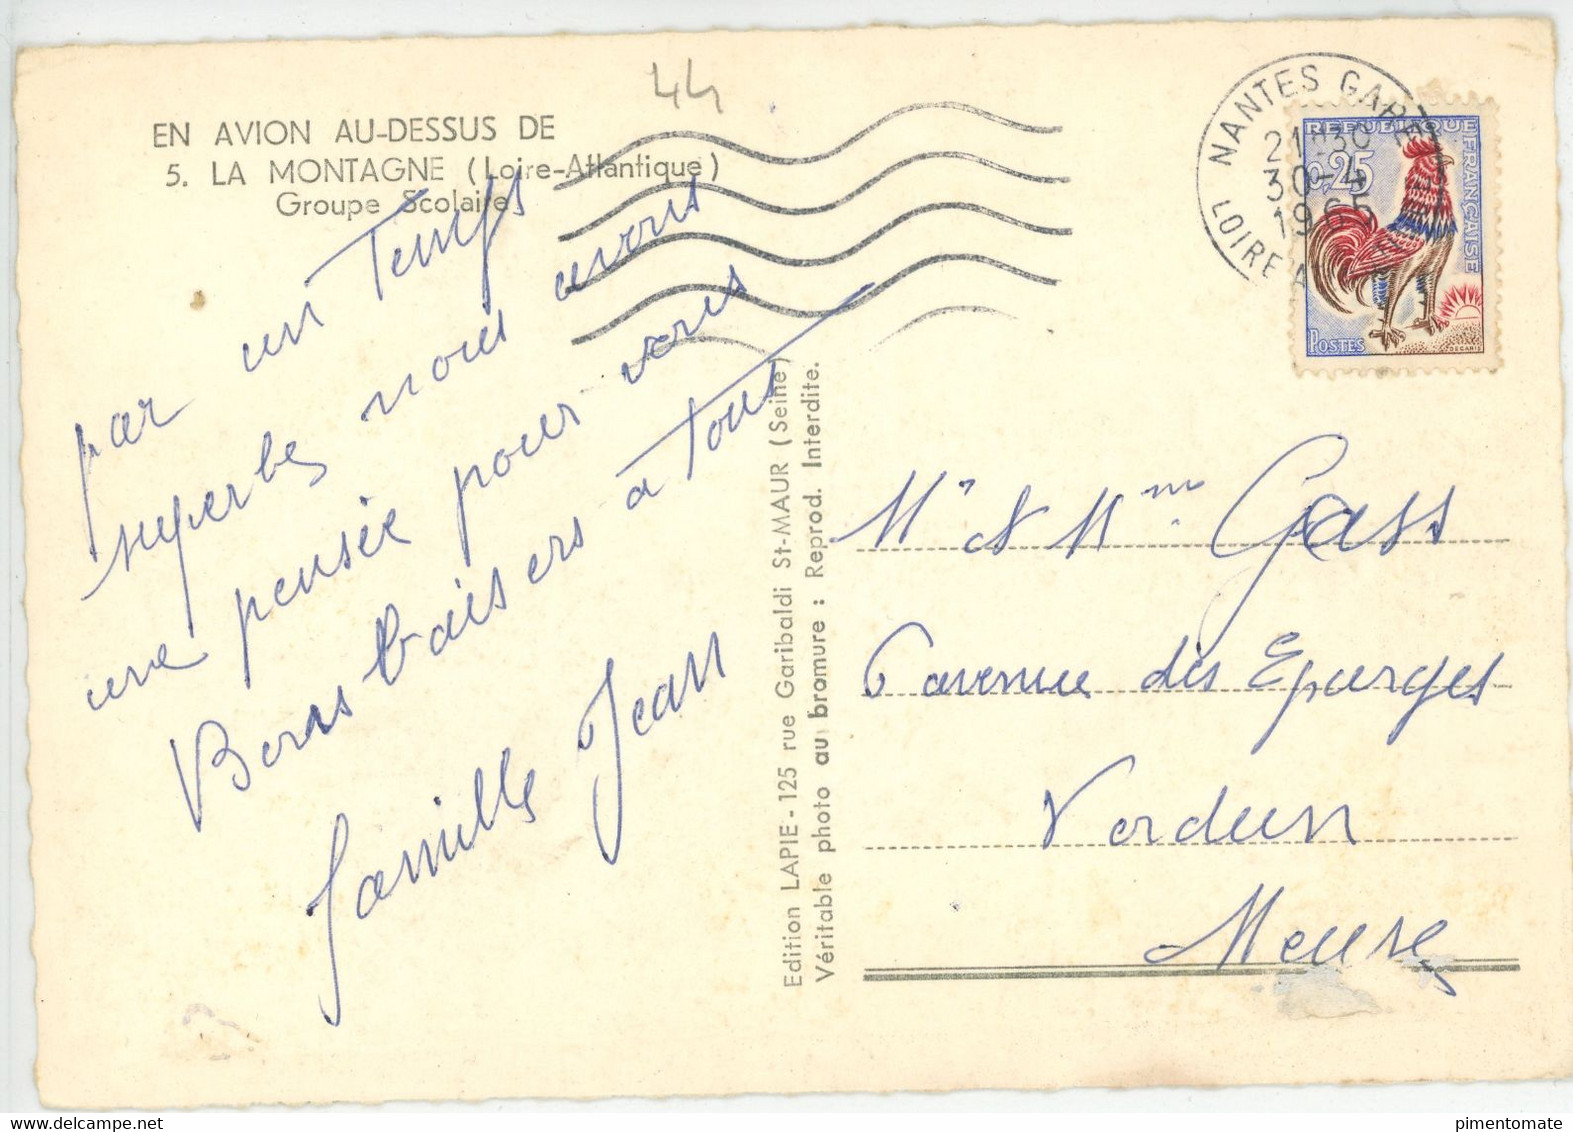 44
EN AVION AU-DESSUS DE
5. LA MONTAGNE (Loire-Atlantique)
Groupe Scolaire
par un Temps
superbes nous avons
une pensée pour vous
Bons baisers a Tous
famille Jean
Edition LAPIE - 125 rue Garibaldi St-MAUR (Seine)
Véritable photo au bromure : Reprod. Interdite.
NANTES GARE
21H30
30-4
1965
LOIRE A
REPUBLIQUE
FRANÇAISE
0,25
POSTES
DECARIS
Mr & Mme Gass
6 avenue des Eparges
Verdun
Meuse
pimentomate